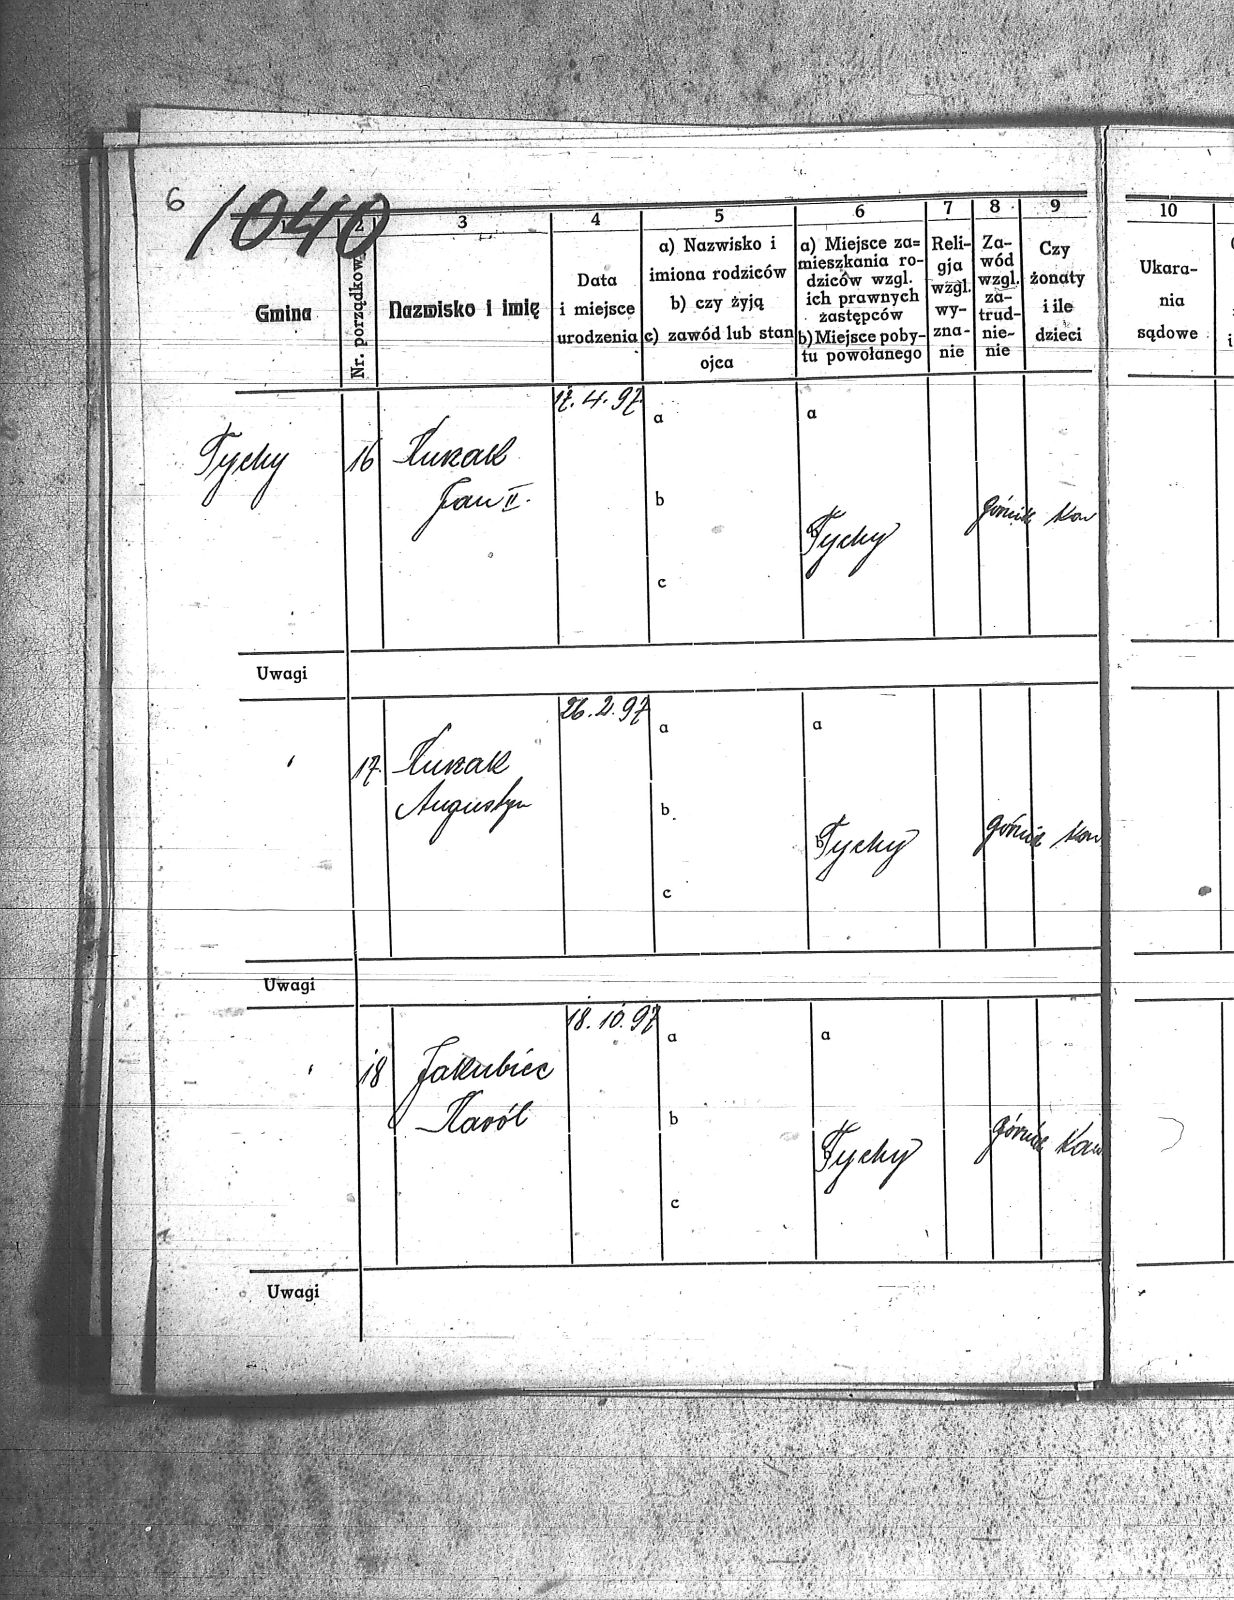 6
1040
2
3
4
5
6
7
8
9
10
Gmina
Nr. porządkowy
Nazwisko i imię
Data
i miejsce
urodzenia
a) Nazwisko i
imiona rodziców
b) czy żyją
c) zawód lub stan
ojca
a) Miejsce za=
mieszkania ro-
dziców wzgl.
ich prawnych
zastępców
b) Miejsce poby-
tu powołanego
Reli-
gja
wzgl.
wy-
zna-
nie
Za-
wód
wzgl.
za-
trud-
nie-
nie
Czy
żonaty
i ile
dzieci
Ukara-
nia
sądowe
Tychy
16
Jan II.
17.4.97
a
b
c
a
b
Tychy
górnik
Uwagi
17.
Augustyn
26.2.97
a
b
c
a
b
Tychy
górnik
Uwagi
18
Jakubiec
Karól
18.10.97
a
b
c
a
b
Tychy
górnik
Uwagi